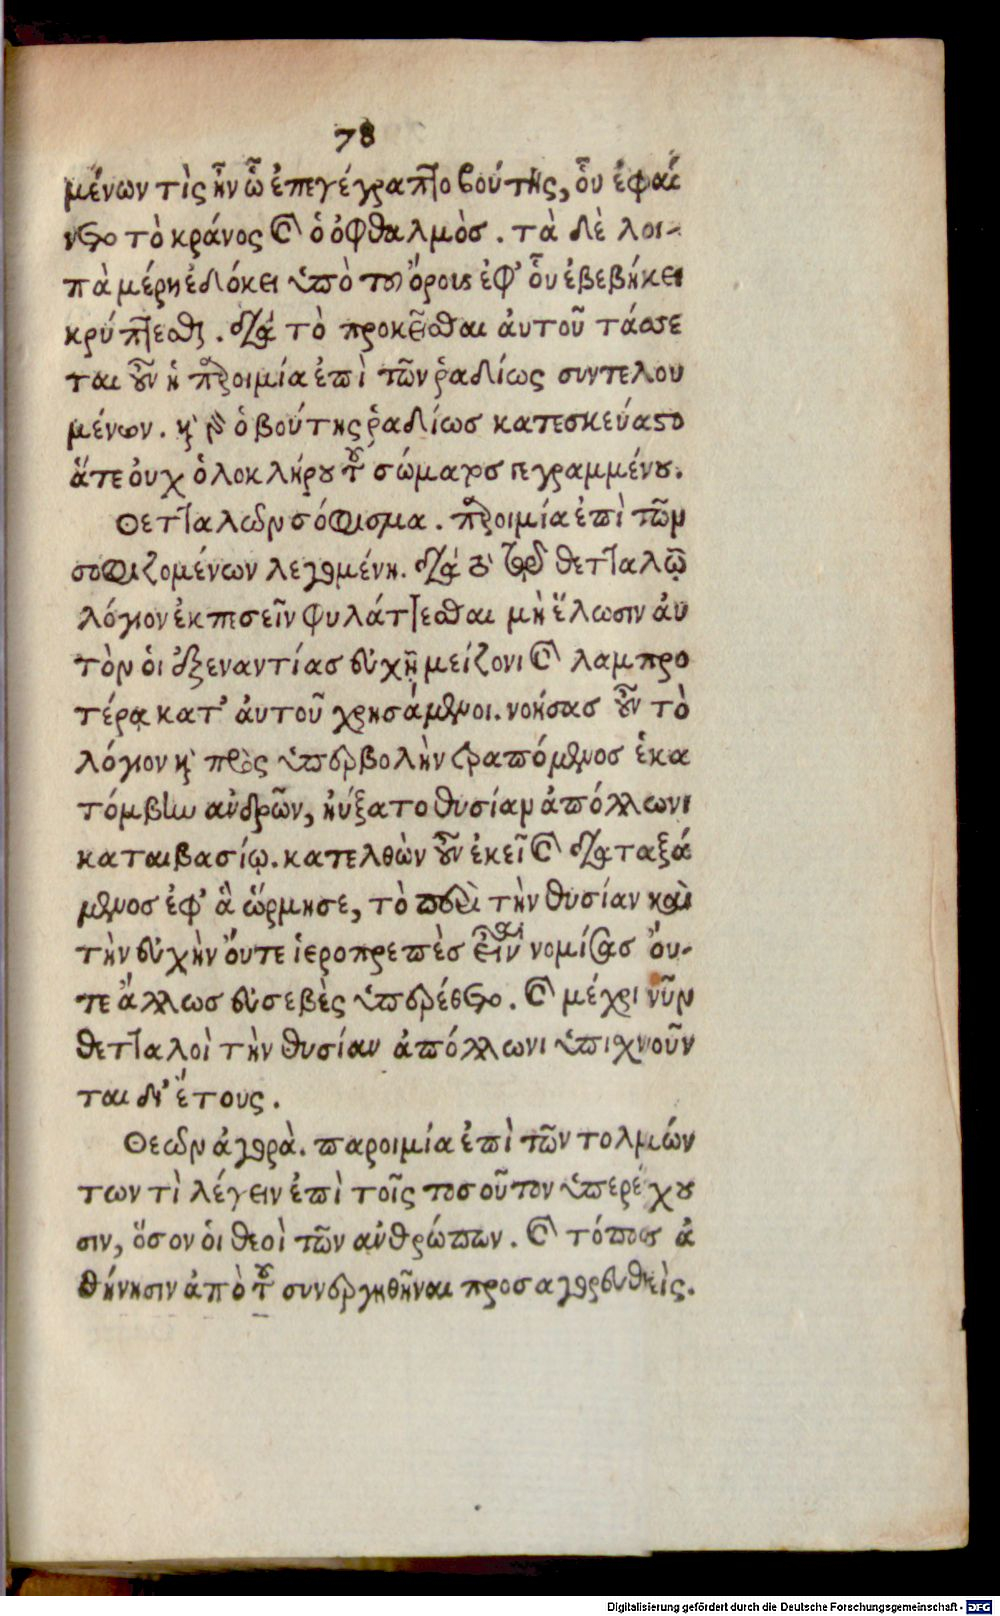 78
μένων τὶς ἦν ᾧ ἐπεγέγραπτο βούτης, ὁῦ ἐφαί
νετο τὸ κράνος καὶ ὁ ὀφθαλμὸσ . τὰ δὲ λοι-
πὰ μέρη ἐδόκει ὑπὸ τοῦ ὄρους ἐφ' ὁῦ ἐβεβήκει
κρύπτεσθαι . διὰ τὸ προκεῖσθαι ἀυτοῦ τάσσε
ται οὖν ἡ παροιμία ἐπὶ τῶν ῥαδίως συντελου
μένων . καὶ γὰρ ὁ βούτης ῥαδίωσ κατεσκεύαστο
ἅτε ὀυχ ὁλοκλήρου τοῦ σώματοσ γεγραμμένου.
Θετταλῶν σόφισμα . παροιμία ἐπὶ τῶν
σοφιζομένων λεγομένη. διὰ τὸ τοῖς θετταλῶν
λόγιον ἐκπεσεῖν φυλάττεσθαι μὴ ἕλωσιν ἀυ
τὸν ὁι ἐξεναντίασ εὐχῇ μείζονι καὶ λαμπρο
τέρᾳ κατ' ἀυτοῦ χρησάμενοι. νοήσασ οὖν τὸ
λόγιον καὶ πρὸς ὑπερβολὴν τραπόμενοσ ἑκα
τόμβην ἀνδρῶν, ηὔξατο θυσίαν ἀπόλλωνι
καταιβασίῳ. κατελθὼν οὖν ἐκεῖ καὶ διαταξά
μενοσ ἐφ' ἃ ὥρμησε, τὸ περὶ τὴν θυσίαν καὶ
τὴν εὐχὴν ὄυτε ἱεροπρεπὲσ εἶναι νομίσασ ὄυ-
τε ἄλλωσ εὐσεβὲς ὑπερέθετο . καὶ μέχρι νῦν
θετταλοὶ τὴν θυσίαν ἀπόλλωνι ὑπιχνοῦν
ται δι' ἔτους .
Θεῶν ἀγορὰ. παροιμία ἐπὶ τῶν τολμών
των τὶ λέγειν ἐπὶ τοῖς τοσοῦτον ὑπερέχου
σιν, ὅσον ὁι θεοὶ τῶν ἀνθρώπων . καὶ τόποσ ἀ
θήνησιν ἀπὸ τοῦ συνεργηθῆναι προσαγορευθεὶς.
Digitalisierung gefördert durch die Deutsche Forschungsgemeinschaft - DFG